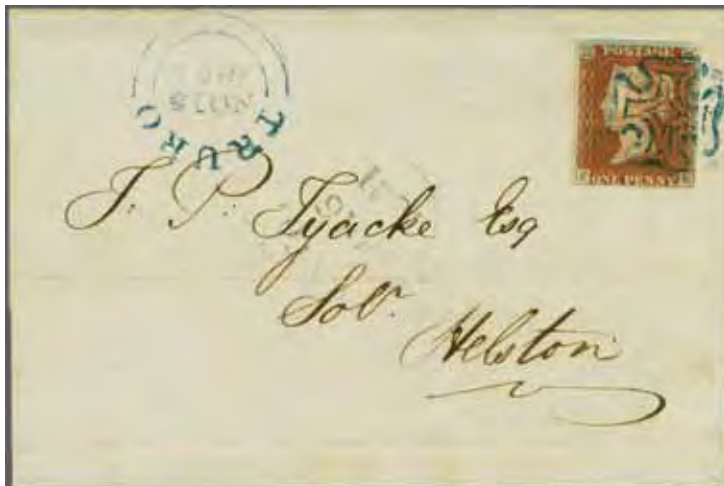 TRURO
POSTAGE
ONE PENNY
J. P. Tyacke Esq
Solr.
Helston